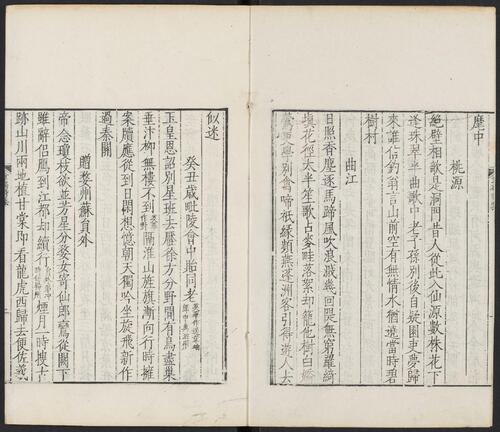 塵中
桃源
絕壁相歌是洞門昔人從此入仙源數株花下
逢珠翠半曲歌中老子孫別後自疑園吏夢歸
來誰信釣翁言山前空有無情水猶遶當時碧
樹村
曲江
日照香塵逐馬蹄風吹浪濺幾回堤無窮羅綺
填花徑太半笙歌占麥畦落絮却籠他樹白嬌
鶯更學別禽啼秖緣頻燕蓬洲客引得遊人去
似迷
癸丑歲毗陵會中貽同老
玉皇恩詔別星班去壓徐方分野間有鳥盡巢
垂汴柳無樓不到隔淮山旌旗漸向行時擁
案牘應從到日閑想憶朝天獨吟坐旋飛新作
過秦關
贈婺州蘇員外
帝念瓊枝欲並芳星分婺女寄仙郎鸞從闕下
雖辭侶鴈到江都却續行煙月一時搜古
跡山川兩地植甘棠即看龍虎西歸去便佐羲